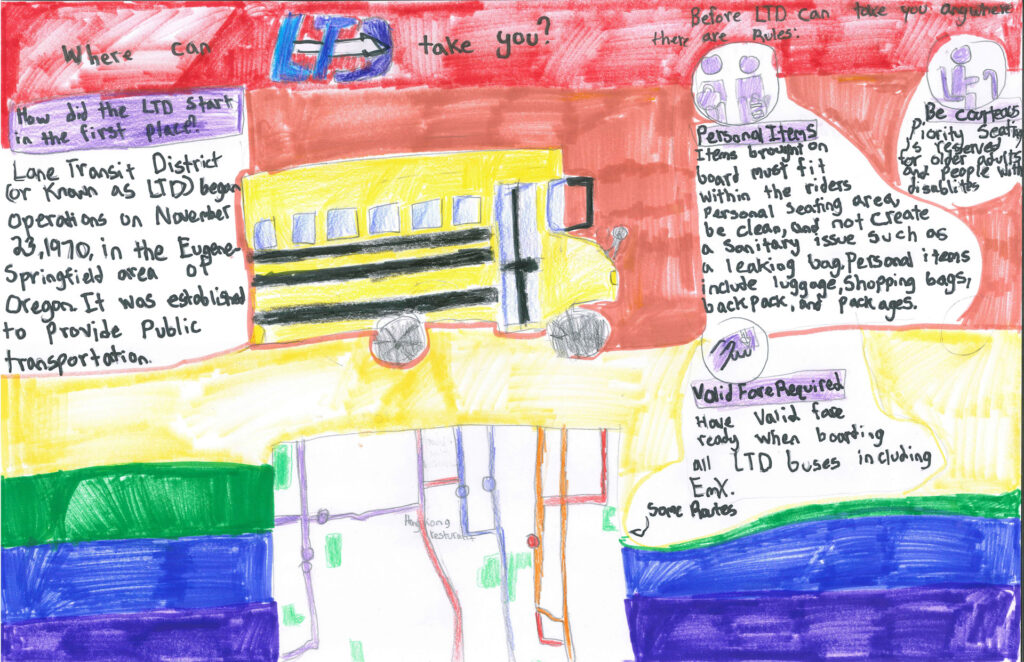 Where can LTD take you?
Before LTD can take you anywhere
there are Rules:
How did the LTD Start
in the first place?
Lane Transit District
(or Known as LTD) began
operations on November
23, 1970, in the Eugene-
Springfield area of
Oregon. It was established
to Provide Public
transportation.
Personal Items
Items brought on
board must fit
within the riders
Personal Seating area,
be clean, and not create
a Sanitary issue such as
a leaking bag. Personal items
include luggage, Shopping bags,
backpack, and packages.
Be courteous
Piority Seating
is reserved
for older adults
and People with
disablites
Valid Fare Required
Have Valid fare
ready when boarding
all LTD buses including
EmX.
Some Routes
Hong Kong